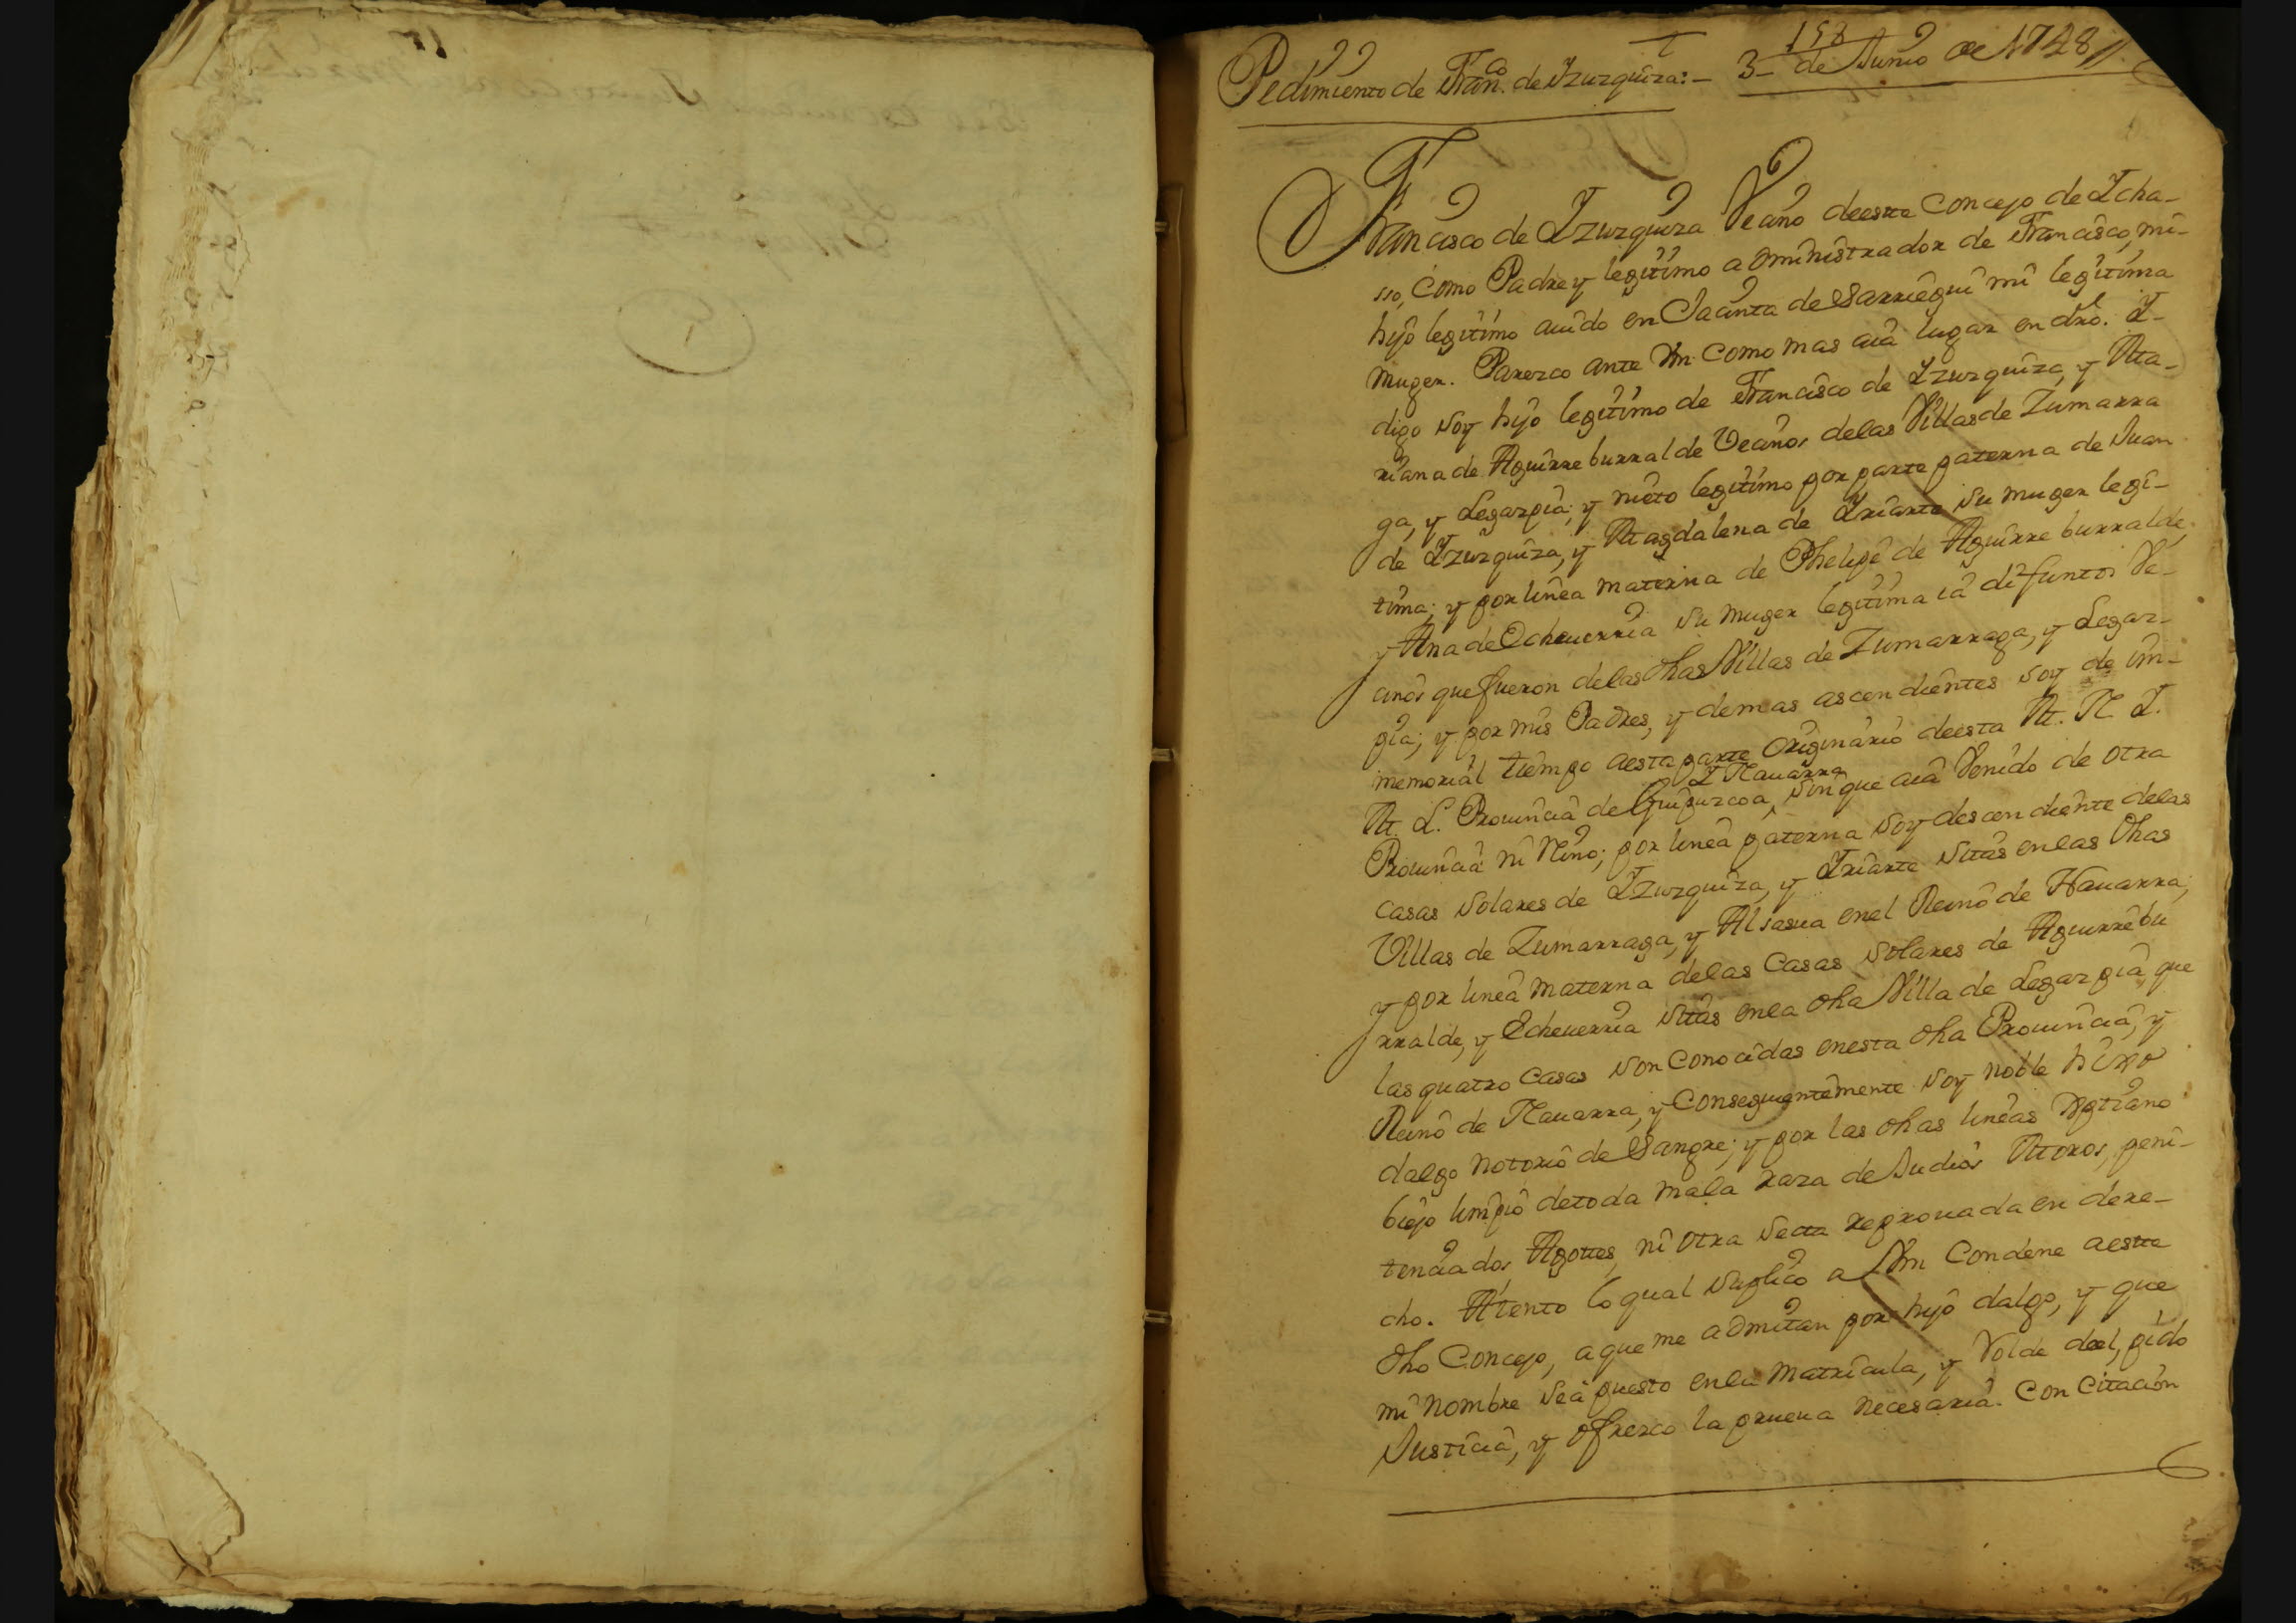 158
Pedimiento de Fran.co de Yzurquiza:- 3- de Junio de 1728//.
Francisco de Yzurquiza Vecino deeste Concejo de Ycha-
sso, Como Padre y legitimo administrador de Francisco, mi-
hijo legitimo auido en Jacinta de Sarriegui mi legitima
muger. Parezco ante Vm. Como mas aia lugar en dro. Y-
digo soy hijo legitimo de Francisco de Yzurquiza, y Ma-
riana de Aguirreburralde Vecinos delas Villas de Zumarra
ga, y Legazpia; y nieto legitimo por parte paterna de Juan
de Yzurquiza, y Magdalena de Yriarte su muger legi-
tima; y por linea materna de Phelipe de Aguirreburralde,
y Ana de Echeuerria su muger legitima ia difuntos Ve-
cinos que fueron delas dhas Villas de Zumarraga, y Legaz-
pia; y por mis Padres, y demas ascendientes soy de im-
memorial tiempo aesta parte Originario deesta M. N. Y.
Y Nauarra
M. L. Prouincia de Guipuzcoa, sin que aia Venido de otra
Prouincia ni Reino; por linea paterna soy descendiente delas
Casas solares de Yzurquiza, y Yriarte sitas enlas dhas
Villas de Zumarraga, y Alsasua enel Reino de Nauarra;
y por linea materna delas Casas solares de Aguirrebu
rralde, y Echeuerria sitas enla dha Villa de Legazpia, que
las quatro Casas son Conocidas enesta dha Prouincia, y
Reino de Nauarra, y Conseguentemente soy noble hixo
dalgo notorio de Sangre; y por las dhas lineas Xptiano
biejo limpio detoda mala raza de Judios Moros, peni-
tenciados Agotes, ni otra secta reprouada en dere-
cho. Atento lo qual suplico a Vm. Condene aeste
dho Concejo, aque me admitan por hijo dalgo, y que
mi nombre sea puesto enla matricula, y Rolde deel, pido
Justicia, y ofrezco la prueua necesaria. Con Citacion